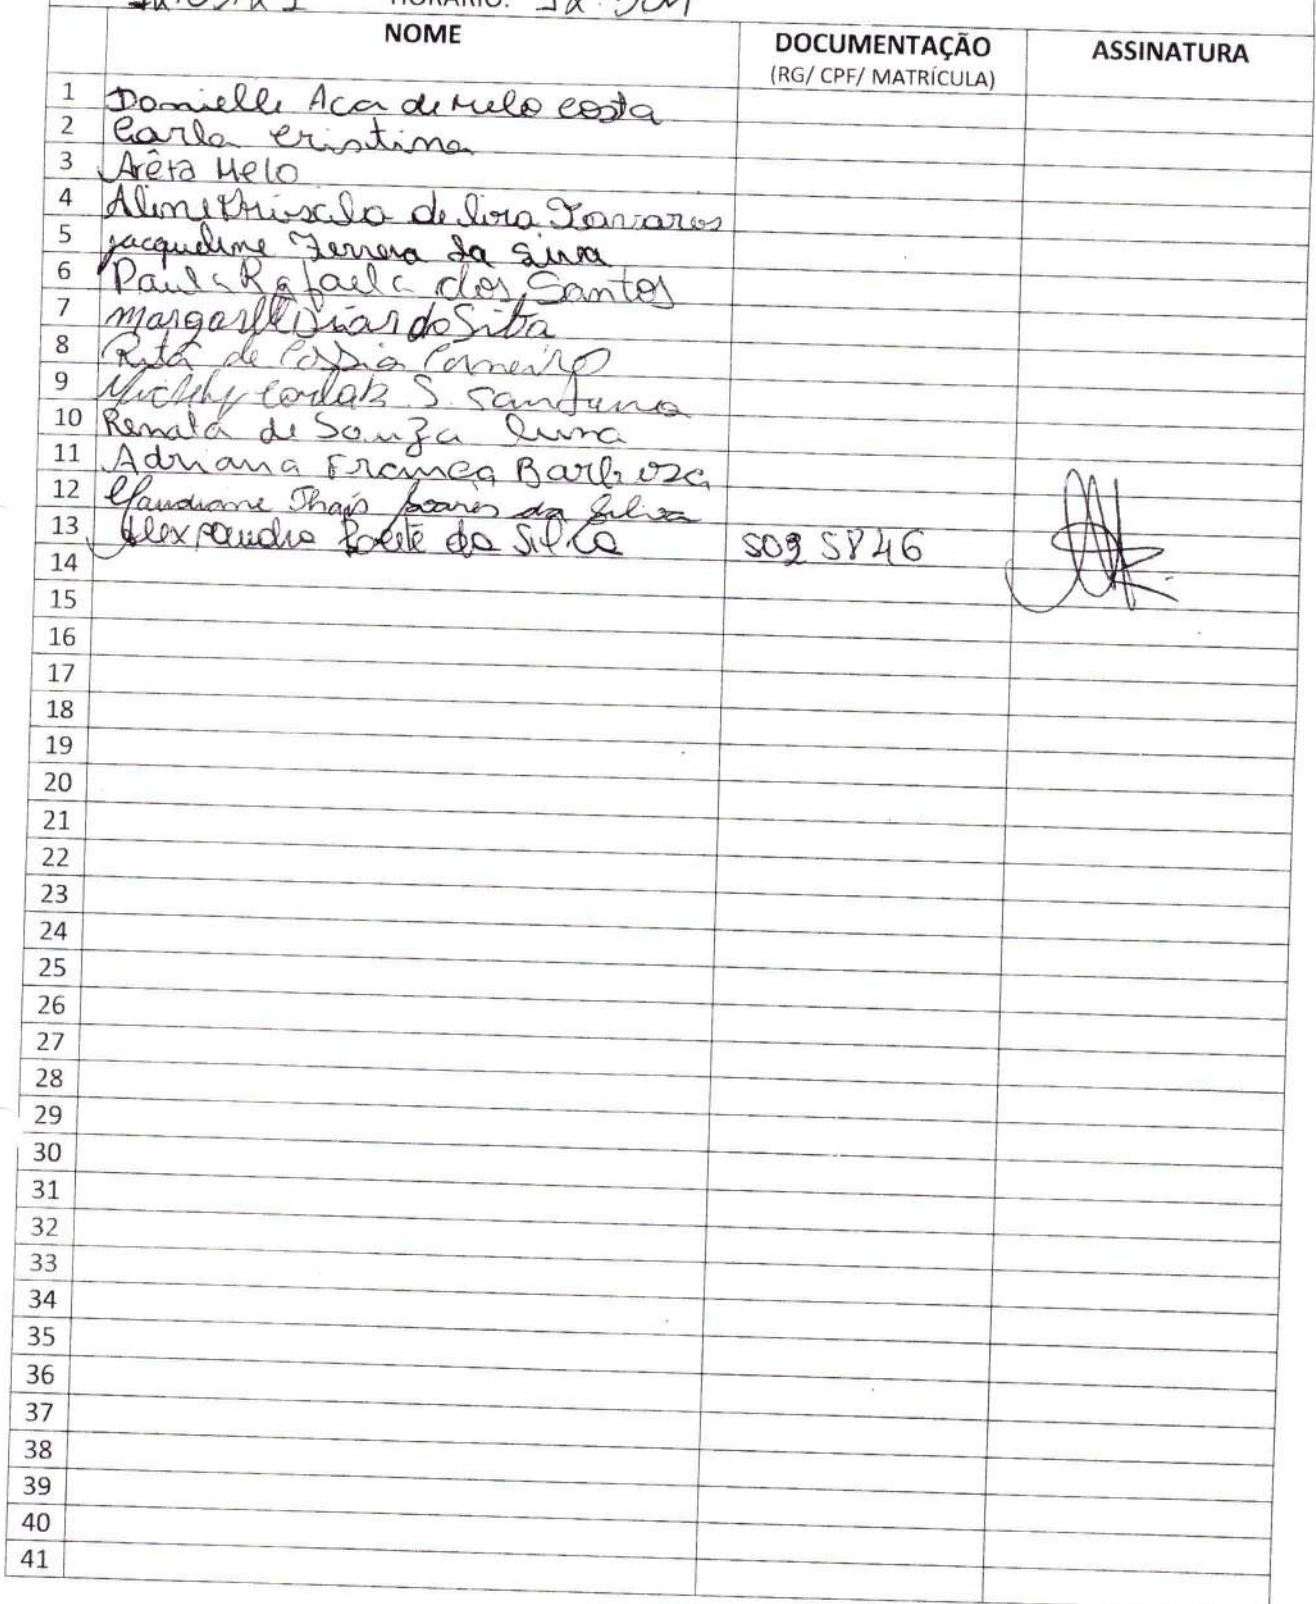 HORÁRIO:
NOME DOCUMENTAÇÃO ASSINATURA
(RG/ CPF/ MATRÍCULA)
1 Danielle Aca de Melo Costa
2 Carla Cristina
3 Arêta Melo
4 Aline Priscila de lira Tavares
5 Jacqueline Ferreira da Silva
6 Paula Rafaela dos Santos
7 Dias da Silva
8 Rita de Cássia Carneiro
9 S. Santana
10 Renata de Souza
11 Adriana França Barboza
12 Claudiane Thaís Soares da Silva
13 da Silva
14
15
16
17
18
19
20
21
22
23
24
25
26
27
28
29
30
31
32
33
34
35
36
37
38
39
40
41